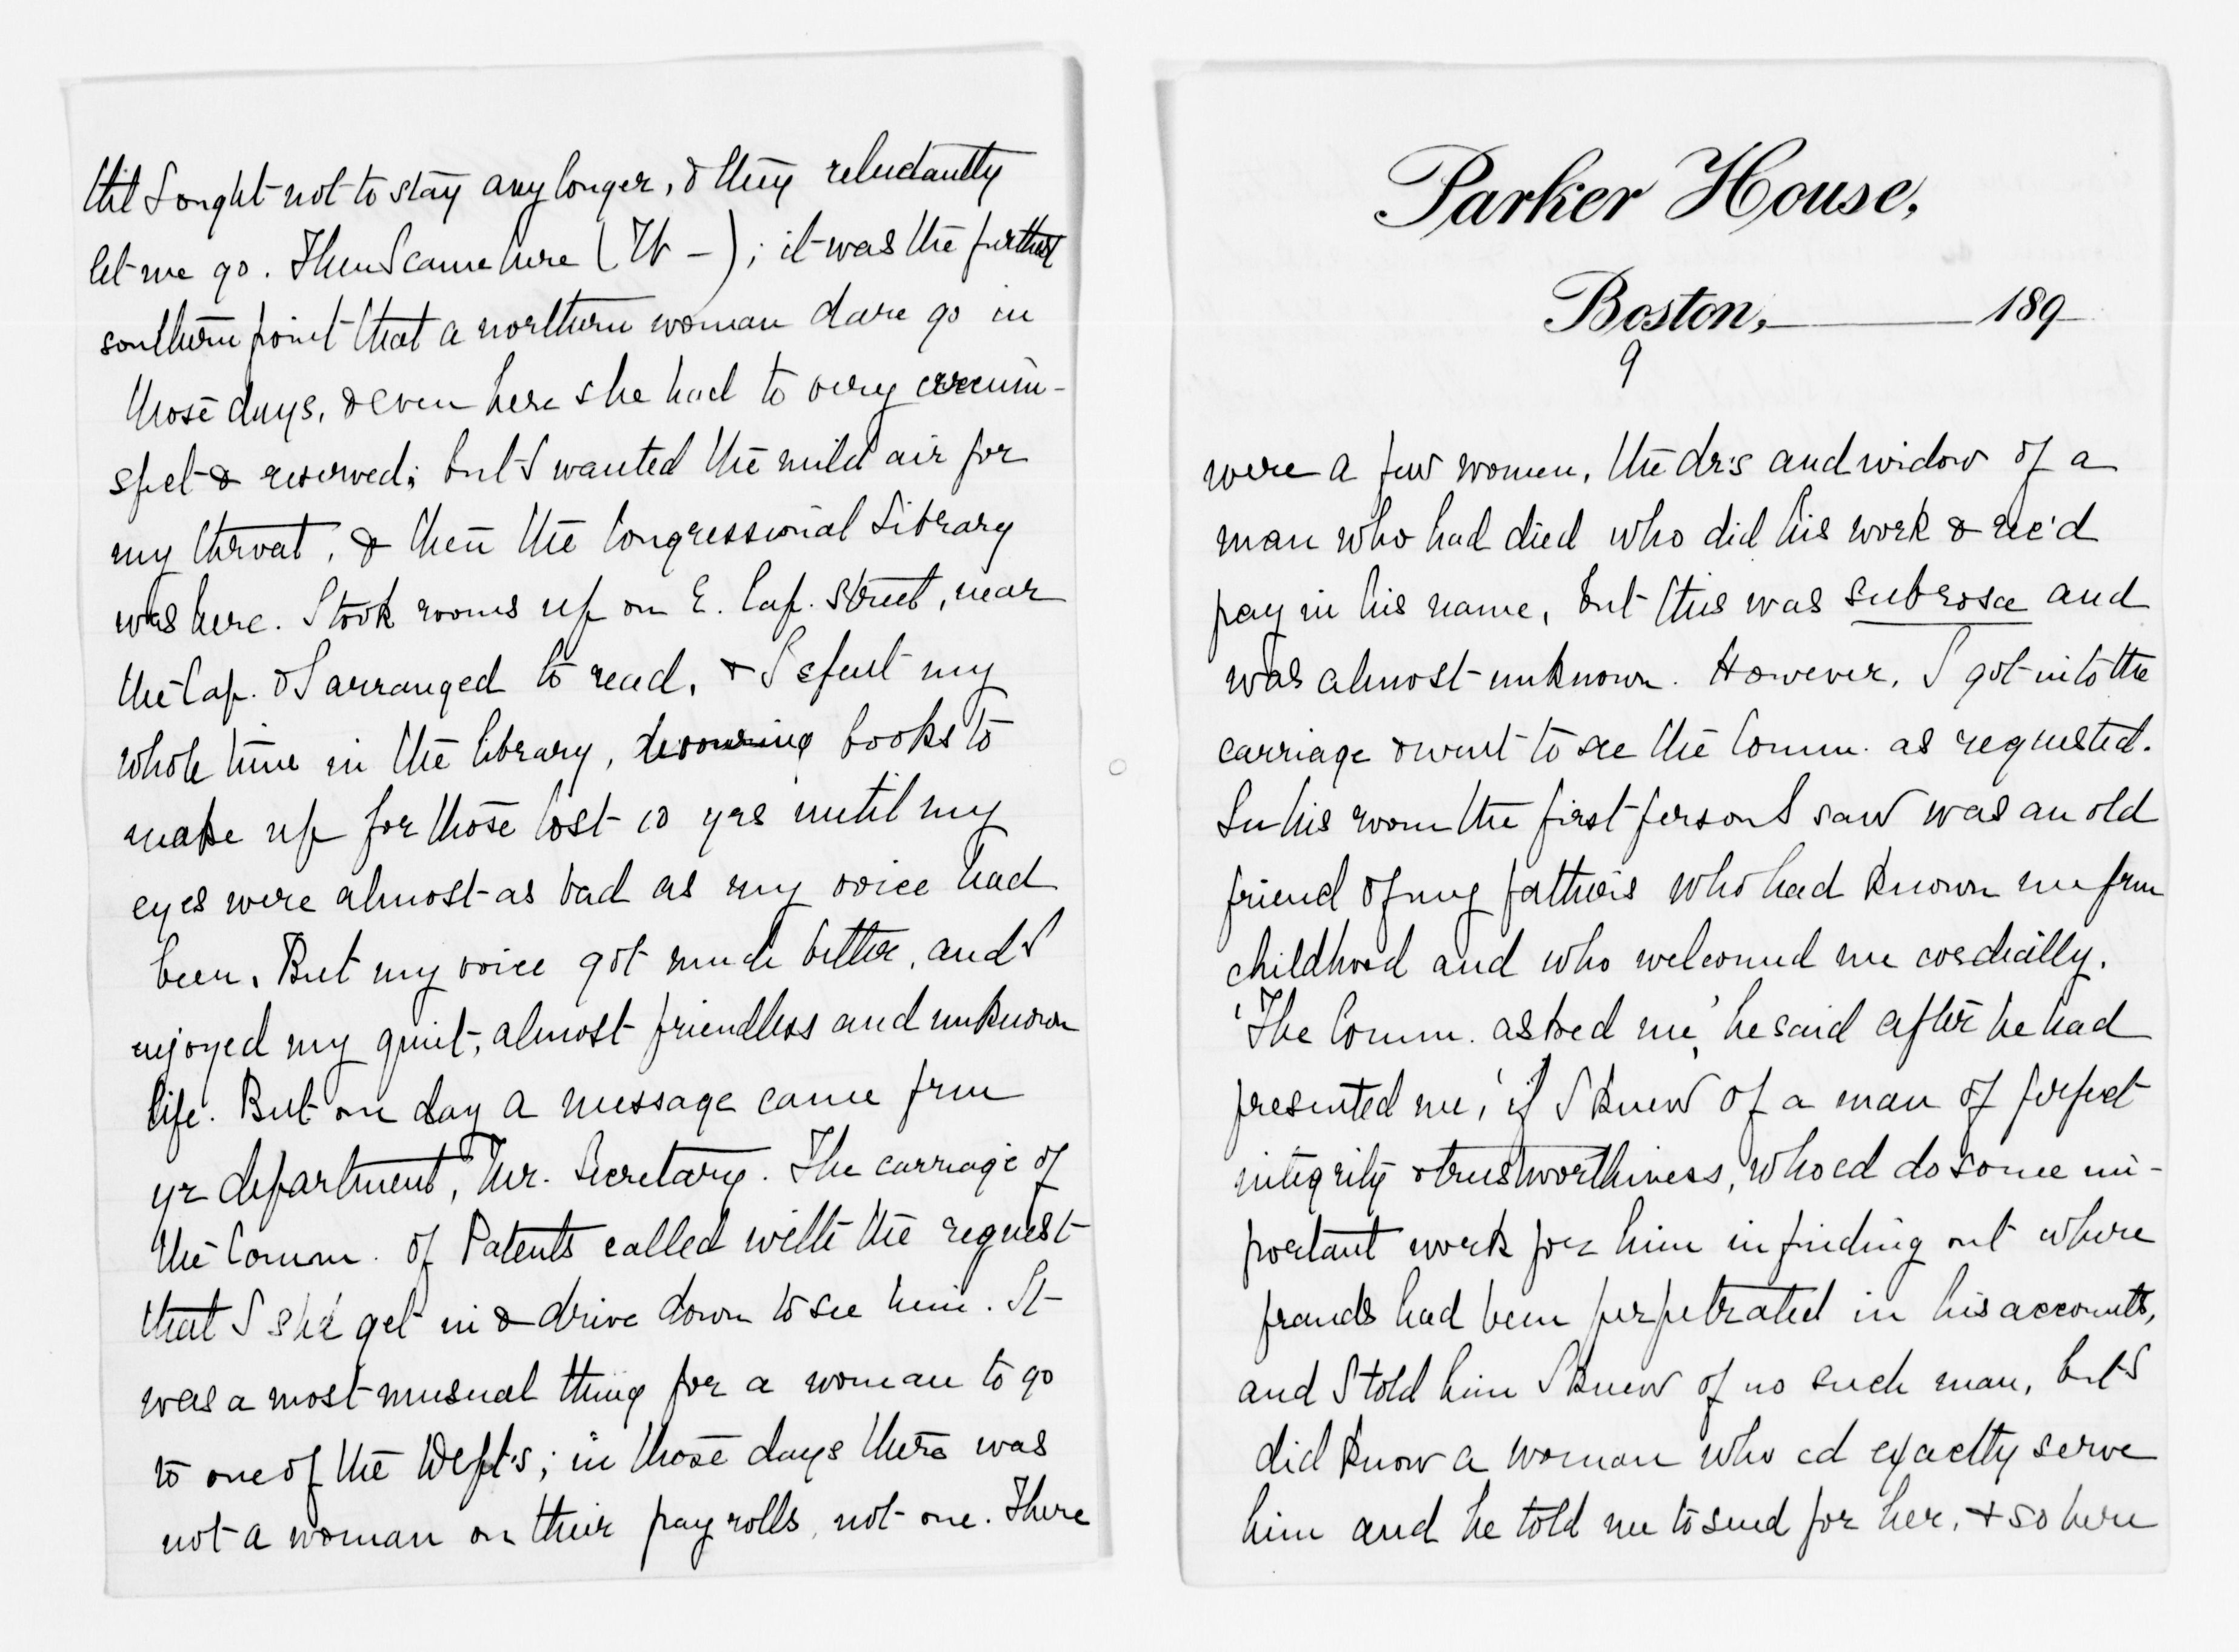 tht I ought not to stay any longer, & they reluctantly
let me go. Then I came here (W—); it was the furthest
southern point that a northern woman dare go in
those days, & even here she had to very circum-
spet & reserved; but I wanted the mild air for
my throat, & then the Congressional Library
was here. I took rooms up on E. Cap. Street, near
the Cap. & I arranged to read, & I spent my
whole time in the library, devouring books to
make up for those lost 10 yrs until my
eyes were almost as bad as my voice had
been. But my voice got much better, and I
enjoyed my quiet, almost friendless and unknown
life. But on day a message came frm
yr department, Mr. Secretary. The carriage of
the Comm. of Patents called with the request
that I shd get in & drive down to see him. It
was a most unusual thing for a woman to go
to one of the Dept's; in those days there was
not a woman on their pay rolls, not one. There
Parker House,
Boston, 189
9
were a few women, the dr's and widow of a
man who had died who did his work & rec'd
pay in his name, but this was subrosa and
was almost unknown. However, I got into the
carriage & went to see the Comm. as requested.
In his room the first person I saw was an old
friend of my father's who had known me frm
childhood and who welcomed me cordially.
'The Comm. asked me,' he said after he had
presented me, 'if I knew of a man of perfect
integrity & trustworthiness, who cd do some im-
portant work for him in finding out where
frauds had been perpetrated in his accounts,
and I told him I knew of no such man, but I
did know a woman who cd exactly serve
him and he told me to send for her, & so here